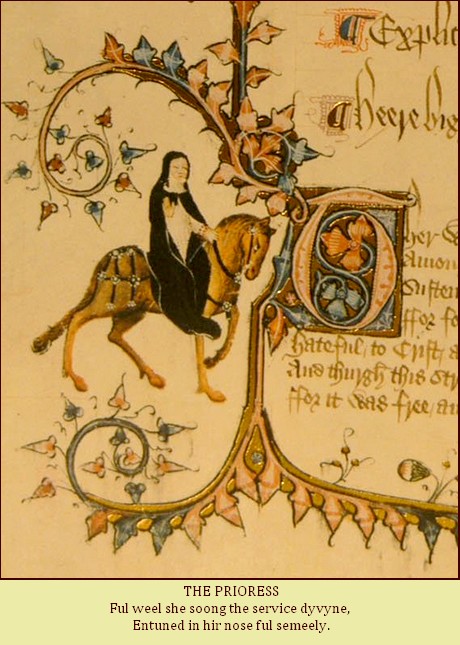 Explic
Heere big
her w
Amon
Susten
ffor fo
hateful to Crist a
And thurgh this str
ffor it was free an
THE PRIORESS
Ful weel she soong the service dyvyne,
Entuned in hir nose ful semeely.